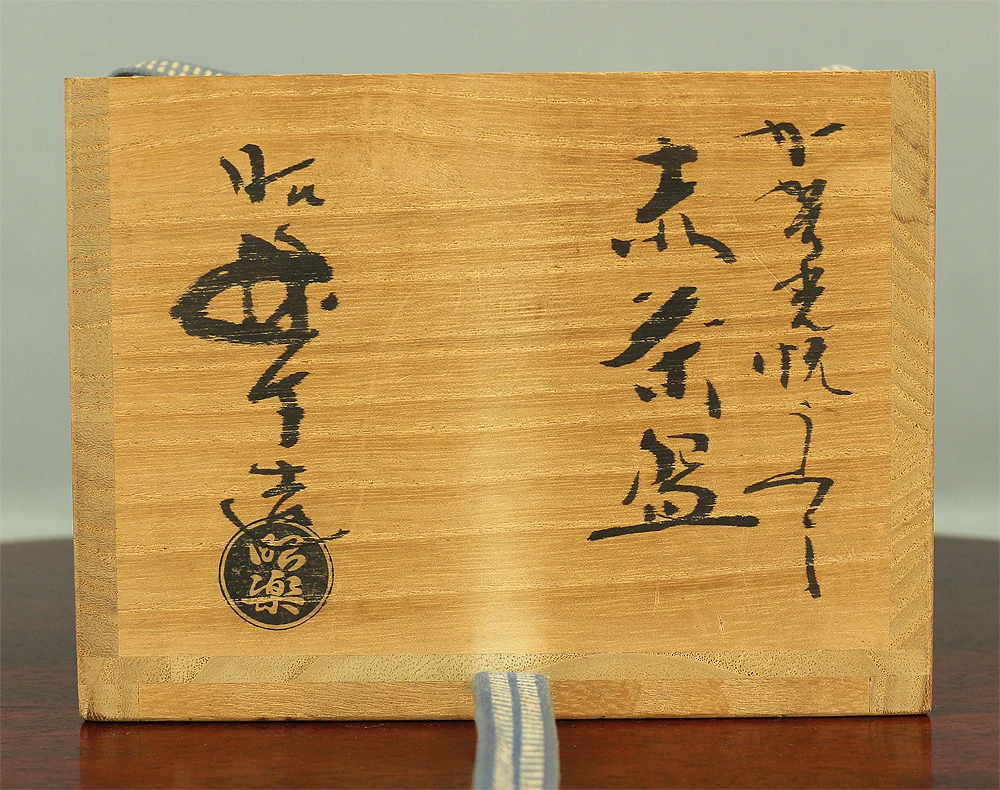 加賀光悦うつし
赤茶盌
昭樂造
昭楽